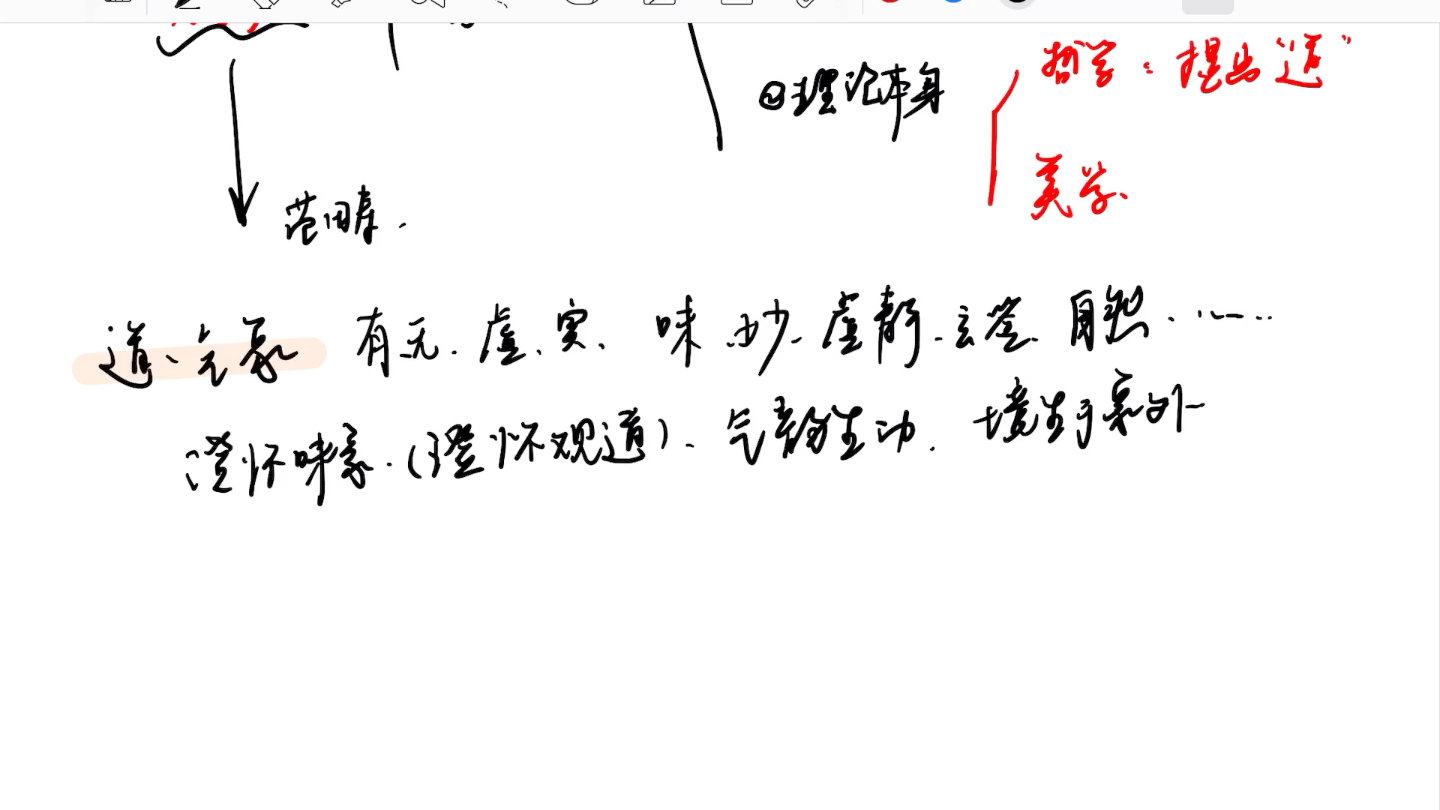 哲学：提出“道”
②理论本身
美学、
范畴.
道、气象 有无.虚、实、味.妙.虚静.玄鉴.自然.……
澄怀味象.(澄怀观道)、气韵生动.境生于象外